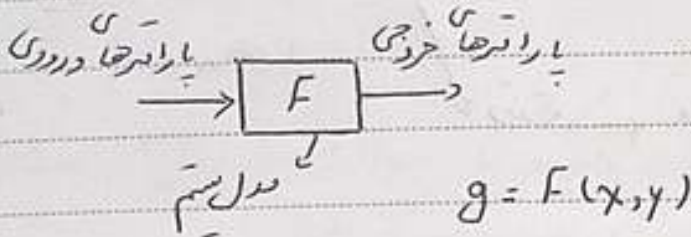 پارامترهای ورودی
پارامترهای خروجی
F
مدل سیستم
g = F(x,y)